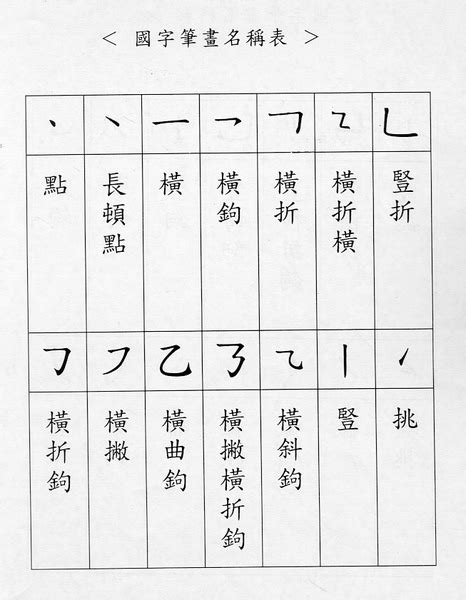 < 國字筆畫名稱表 >
丶 ㇔ 一 乛 𠃍 ㇅ 𠃊
點
長頓點
橫
橫鉤
橫折
橫折橫
豎折
𠃌 ㇇ 乙 ㇌ ⺄ 丨 ㇀
橫折鉤
橫撇
橫曲鉤
橫撇橫折鉤
橫斜鉤
豎
挑